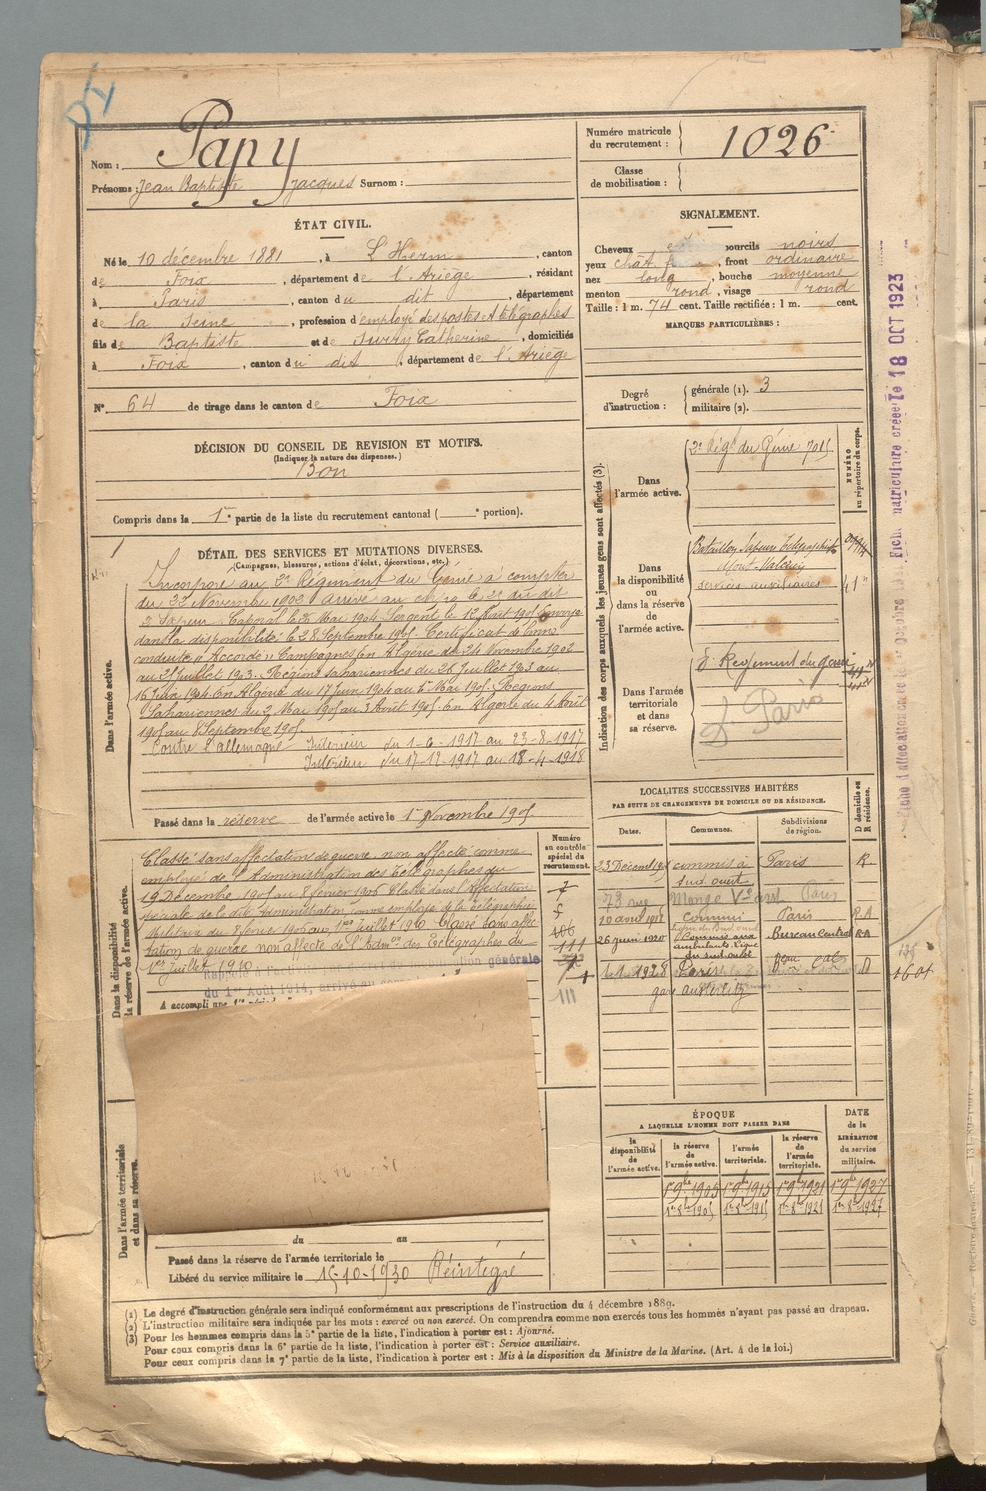 Nom : Papy
Prénoms : Jean Baptiste Jacques Surnom :
Numéro matricule du recrutement : 1026
Classe de mobilisation :
ÉTAT CIVIL.
Né le 10 décembre 1881, à L'Herm, canton
de Foix, département de l'Ariège, résidant
à Paris, canton du dit, département
de la Seine, profession d'employé des postes et télégraphes
fils de Baptiste et de Catherine, domiciliés
à Foix, canton du dit, département de l'Ariège
N° 64 de tirage dans le canton de Foix
SIGNALEMENT.
Cheveux sourcils noirs
yeux chât. , front ordinaire
nez long, bouche moyenne
menton rond, visage rond
Taille : 1 m. 74 cent. Taille rectifiée : 1 m. cent.
MARQUES PARTICULIÈRES :
Degré d'instruction : générale (1). 3
militaire (2).
DÉCISION DU CONSEIL DE REVISION ET MOTIFS.
(Indiquer la nature des dispenses.)
Bon
Compris dans la 1re partie de la liste du recrutement cantonal ( portion).
DÉTAIL DES SERVICES ET MUTATIONS DIVERSES.
(Campagnes, blessures, actions d'éclat, décorations, etc.)
Dans l'armée active.
Incorporé au 2e Régiment du Génie à compter
du 22 Novembre 1902 arrivé au corps le 22 du dit
2e Sapeur. Caporal le Mai 1904 Sergent le 12 Août 1905 Envoyé
dans la disponibilité le 28 Septembre 1905. Certificat de bonne
conduite "Accordé" Campagnes En Algérie du 24 Novembre 1902
au 25 Juillet 1903. Régions Sahariennes du 26 Juillet 1903 au
16 Juin 1904 En Algérie du 17 Juin 1904 au Mai 1905. Régions
Sahariennes du 2 Mai 1905 au 3 Août 1905. En Algérie du 4 Août
1905 au 8 Septembre 1905
Contre l'allemagne Intérieur du 1-6-1917 au 23-8-1917
Intérieur du 17-12-1917 au 18-4-1918
Passé dans la réserve de l'armée active le 1er Novembre 1905
Indication des corps auxquels les jeunes gens sont affectés (3).
NUMÉRO au répertoire du corps.
Dans l'armée active.
2e Régt du Génie 7015
Dans la disponibilité ou dans la réserve de l'armée active.
Bataillon Sapeurs Télégraphistes
Mont-Valérien
services auxiliaires
Dans l'armée territoriale et dans sa réserve.
8e Regiment du génie
D. Paris
Fiche matriculaire créée le 18 OCT 1923
Dans la disponibilité ou dans la réserve de l'armée active.
Classé sans affectation de guerre, non affecté comme
employé de l'Administration des télégraphes du
19 Décembre 1905 au 8 février 1906 Classé dans l'Affectation
spéciale de la dite Administration comme employé de la télégraphie
Militaire du 8 février 1906 au 1er Juillet 1910 Classé sans affec-
tation de guerre non affecté de l'Admon des Télégraphes du
1er Juillet 1910
Rappelé à l'activité générale
du 1er Août 1914, arrivé au
A accompli une
Numéro au contrôle spécial du recrutement.
111
LOCALITES SUCCESSIVES HABITÉES
PAR SUITE DE CHANGEMENTS DE DOMICILE OU DE RÉSIDENCE.
Dates. Communes. Subdivisions de région. D domicile ou R résidence.
23 Décembre commis à Paris R.
Sud ouest
73 rue Monge Paris
10 août 1912 Commis Paris R.A
26 juin 1920 Commis aux Bureau Central RA
ambulants Ligne
du sud ouest
6.1.1928 Paris D
gare austerlitz
1601
Dans l'armée territoriale et dans sa réserve.
du au
Passé dans la réserve de l'armée territoriale le
Libéré du service militaire le 15-10-1930 Réintégré
ÉPOQUE
A LAQUELLE L'HOMME DOIT PASSER DANS
DATE de la LIBÉRATION du service militaire.
la disponibilité de l'armée active. la réserve de l'armée active. l'armée territoriale. la réserve de l'armée territoriale.
1er 9bre 1905 1er 9bre 1915 1er 9bre 1921 1er 9bre 1927
1er 8bre 1905 1er 8bre 1915 1er 8bre 1921 1er 8bre 1927
(1) Le degré d'instruction générale sera indiqué conformément aux prescriptions de l'instruction du 4 décembre 1889.
(2) L'instruction militaire sera indiquée par les mots : exercé ou non exercé. On comprendra comme non exercés tous les hommes n'ayant pas passé au drapeau.
(3) Pour les hommes compris dans la 5e partie de la liste, l'indication à porter est : Ajourné.
Pour ceux compris dans la 6e partie de la liste, l'indication à porter est : Service auxiliaire.
Pour ceux compris dans la 7e partie de la liste, l'indication à porter est : Mis à la disposition du Ministre de la Marine. (Art. 4 de la loi.)